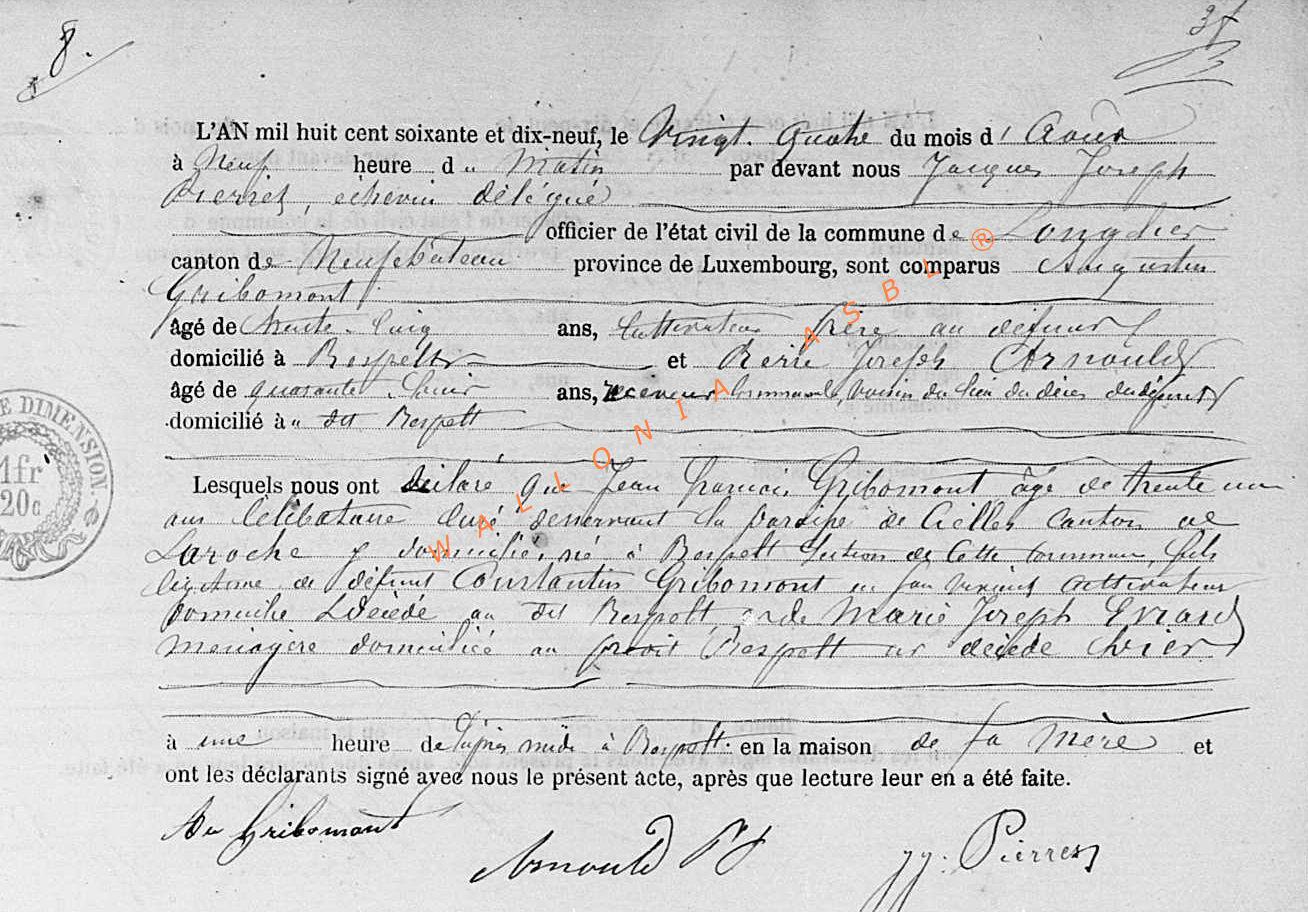 8.
37
L'AN mil huit cent soixante et dix-neuf, le Vingt quatre du mois d' Août
à Neuf heure du Matin par devant nous Jacques Joseph
Pierret, échevin délégué
officier de l'état civil de la commune de Longlier
canton de Neufchâteau province de Luxembourg, sont comparus Augustin
Gribomont
âgé de trente-cinq ans, Cultivateur frère au défunt
domicilié à Respelt et Joseph Arnould
âgé de quarante ans, receveur communal, voisin du lieu du décès du défunt
domicilié à dit Respelt
Lesquels nous ont déclaré que Jean François Gribomont âgé de trente un
ans Célibataire curé desservant la paroisse de Cielles canton de
Laroche y domicilié, né à Respelt section de cette commune, fils
légitime de défunt Constantin Gribomont en son vivant cultivateur
domicilié décédé au dit Respelt, et de Marie Joseph Evrard
ménagère domiciliée au prédit Respelt est décédé hier
à une heure de l'après midi à Respelt en la maison de sa mère et
ont les déclarants signé avec nous le présent acte, après que lecture leur en a été faite.
Au Gribomont
Arnould PJ
JJ. Pierret
E DIMENSION.
1fr
20c
WALLONIA ASBL ®